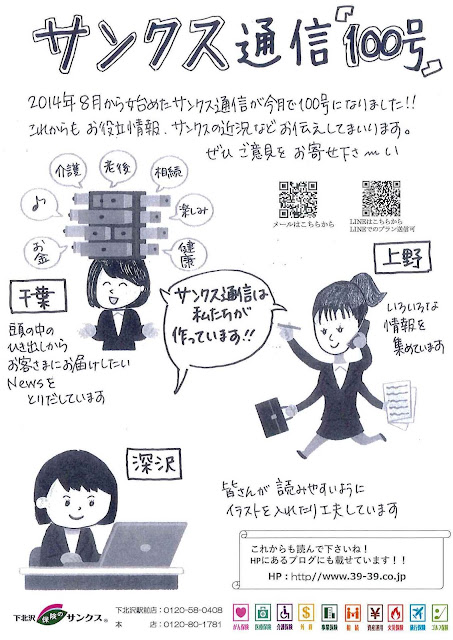 サンクス通信『100号』
2014年8月から始めたサンクス通信が今月で100号になりました!!
これからも お役立情報、サンクスの近況など お伝えしてまいります。
ぜひ ご意見を お寄せ下さ〜い
介護
老後
相続
♪
楽しみ
お金
健康
メールはこちらから
LINEはこちらから
LINEでのプラン送信可
千葉
頭の中の
ひき出しから
お客さまにお届けしたい
Newsを
とりだしています
サンクス通信は
私たちが
作っています!!
上野
いろいろな
情報を
集めています
深沢
皆さんが 読みやすいように
イラストを入れたり工夫しています
これからも読んで下さいね!
HPにあるブログにも載せています!!
HP:http://www.39-39.co.jp
下北沢 保険の サンクス®
下北沢駅前店:0120-58-0408
本 店:0120-80-1781
がん保険
医療保険
介護保険
学資